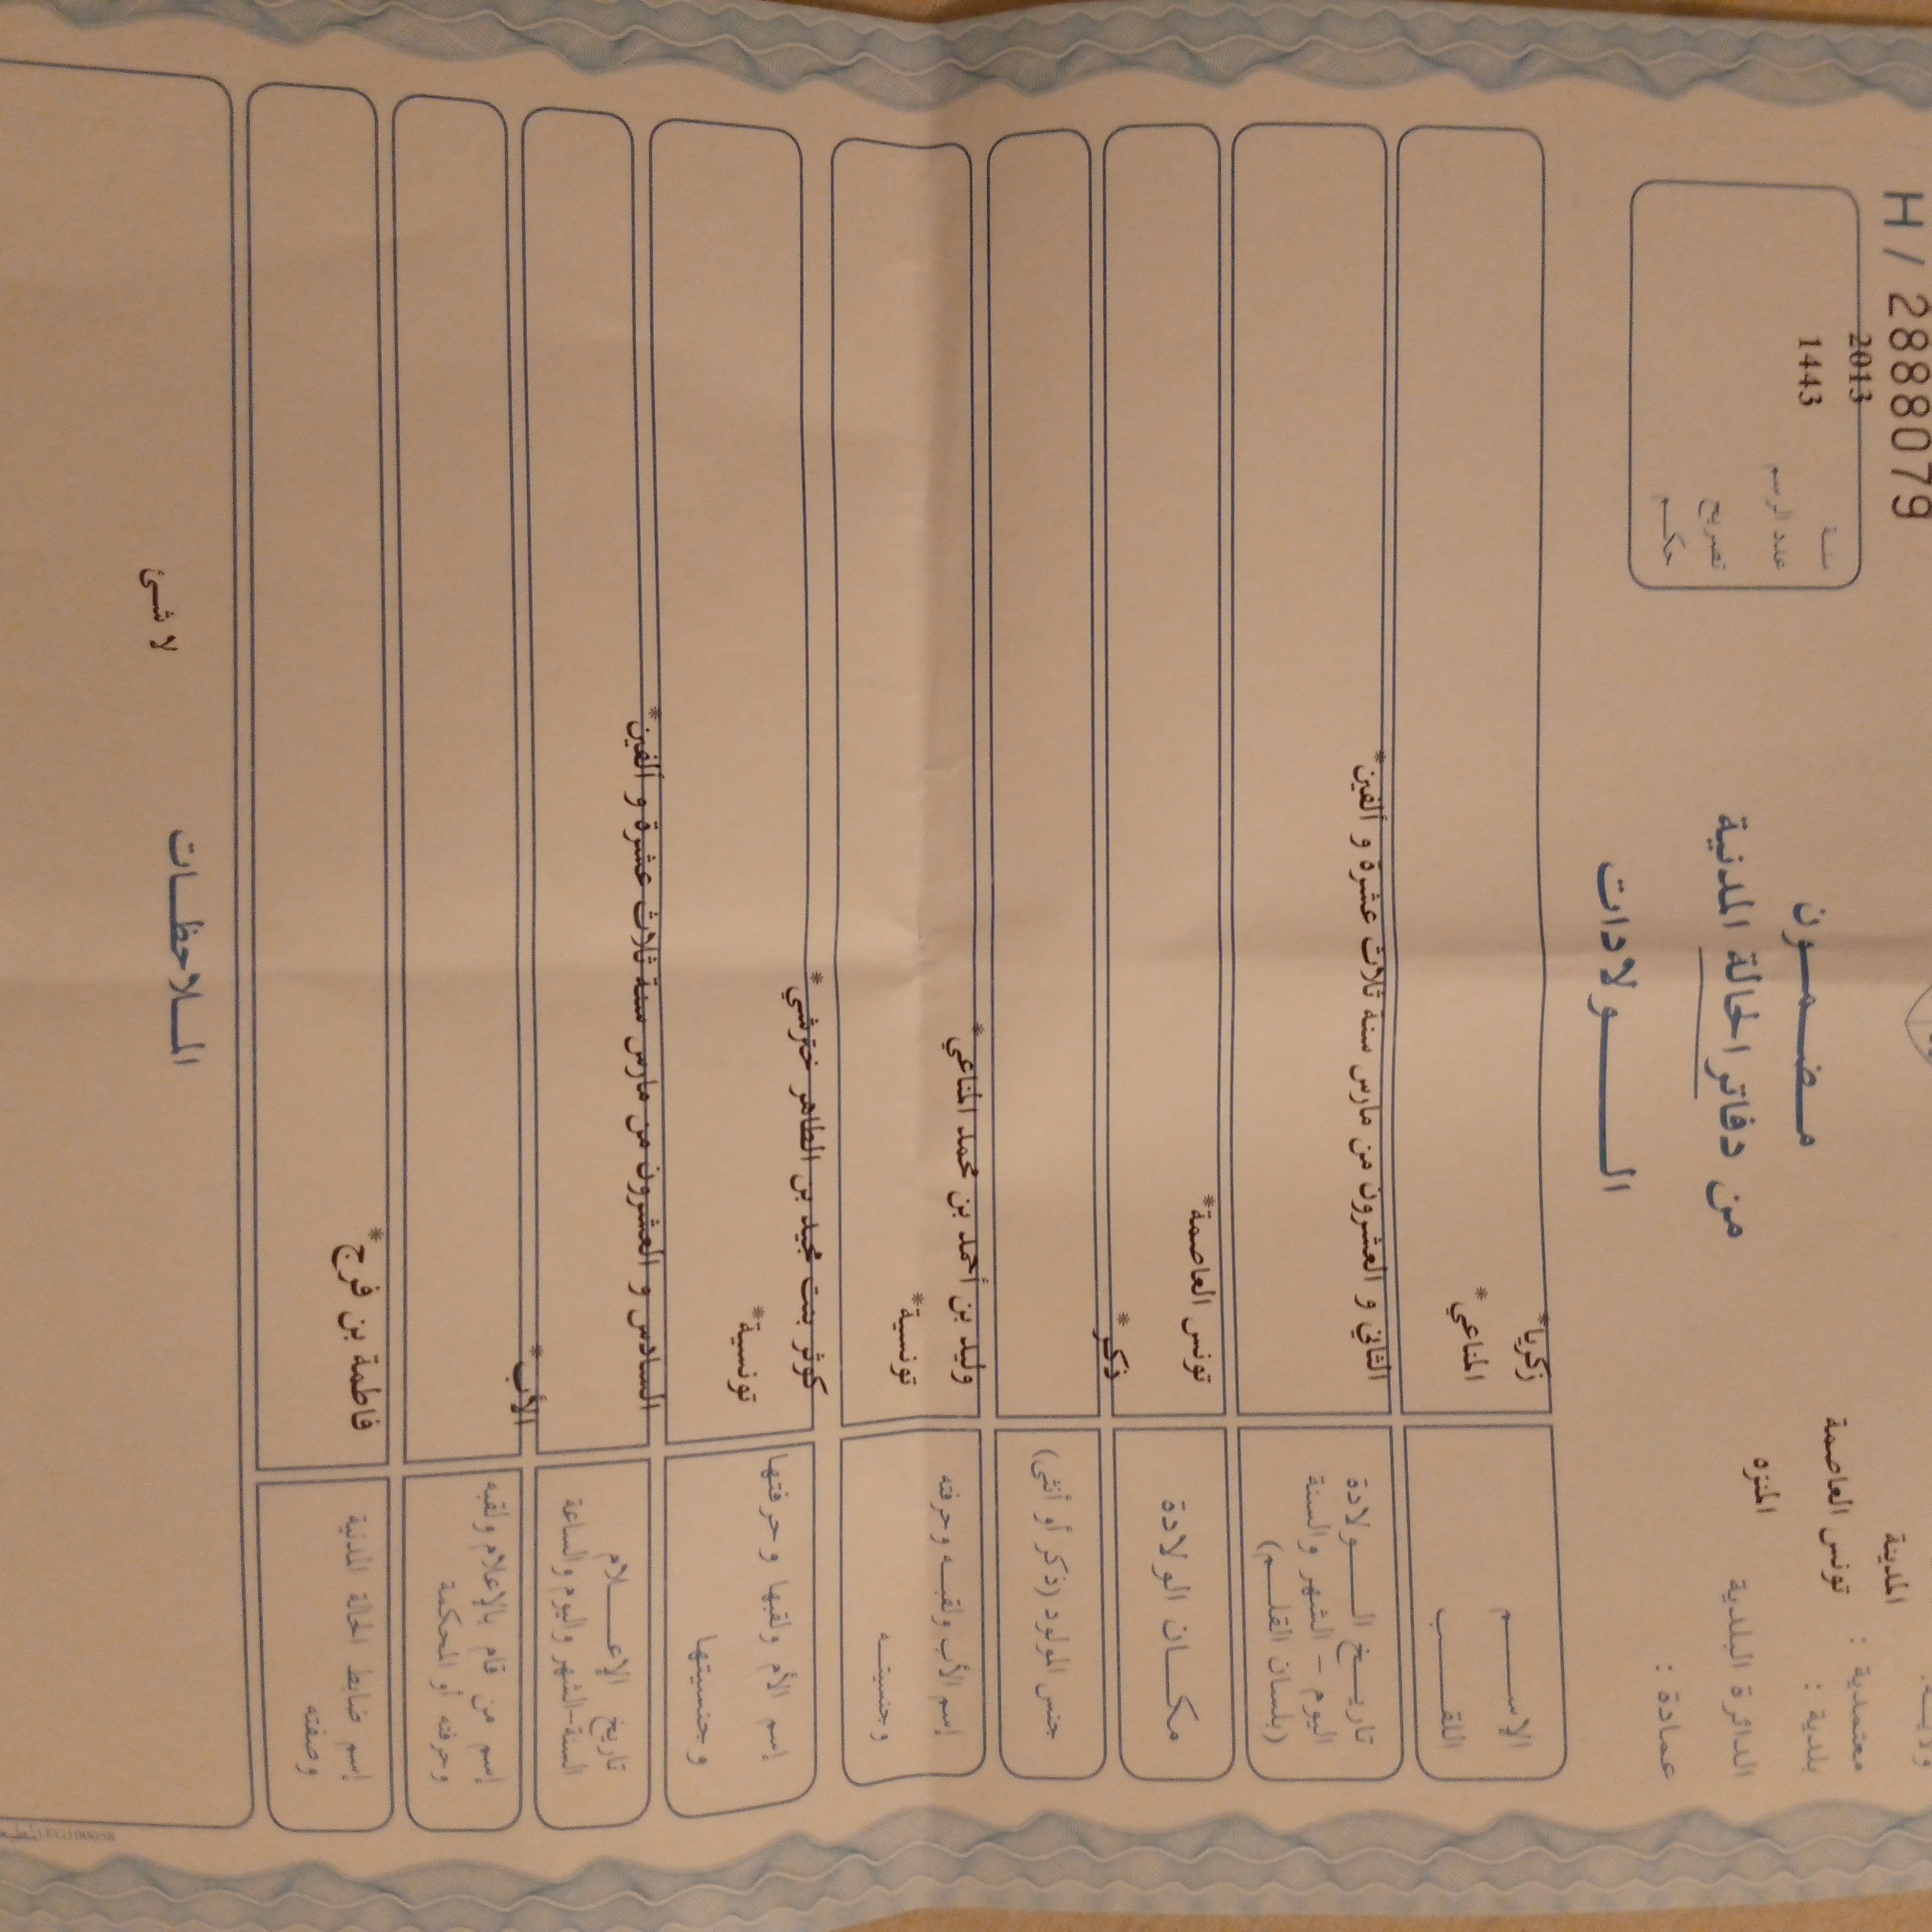 H / 2888079
المدينة
معتمدية :
تونس العاصمة
بلدية :
المنزه
الدائرة البلدية
عمادة :
سنة 2013
عدد الرسم 1443
تصريح
حكم
مضمون
من دفاتر الحالة المدنية
الولادات
الإسم
زكرياء*
اللقب
المناعي*
تاريخ الولادة
اليوم - الشهر والسنة
(بلسان القلم)
الثاني و العشرون من مارس سنة ثلاث عشرة و ألفين*
مكان الولادة
تونس العاصمة*
جنس المولود (ذكر أو أنثى)
ذكر*
إسم الأب ولقبه وحرفته
وجنسيته
وليد بن أحمد بن محمد المناعي*
تونسية*
إسم الأم ولقبها وحرفتها
وجنسيتها
كوثر بنت مجيد بن الطاهر خترشي*
تونسية*
تاريخ الإعلام
السنة-الشهر واليوم والساعة
السادس و العشرون من مارس سنة ثلاث عشرة و ألفين*
إسم من قام بالإعلام ولقبه
وحرفته أو المحكمة
الأب*
إسم ضابط الحالة المدنية
وصفته
فاطمة بن فرج*
الملاحظات
لا شئ